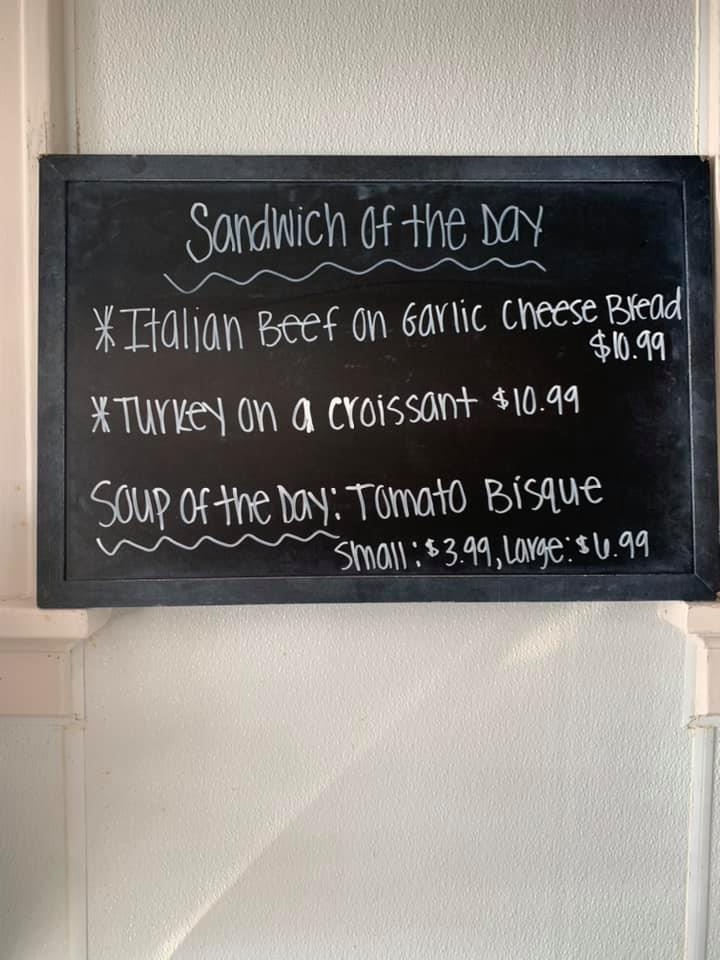 Sandwich of the Day
*Italian Beef on Garlic Cheese Bread
$10.99
*Turkey on a croissant $10.99
Soup of the Day: Tomato Bisque
Small: $3.99, Large: $6.99